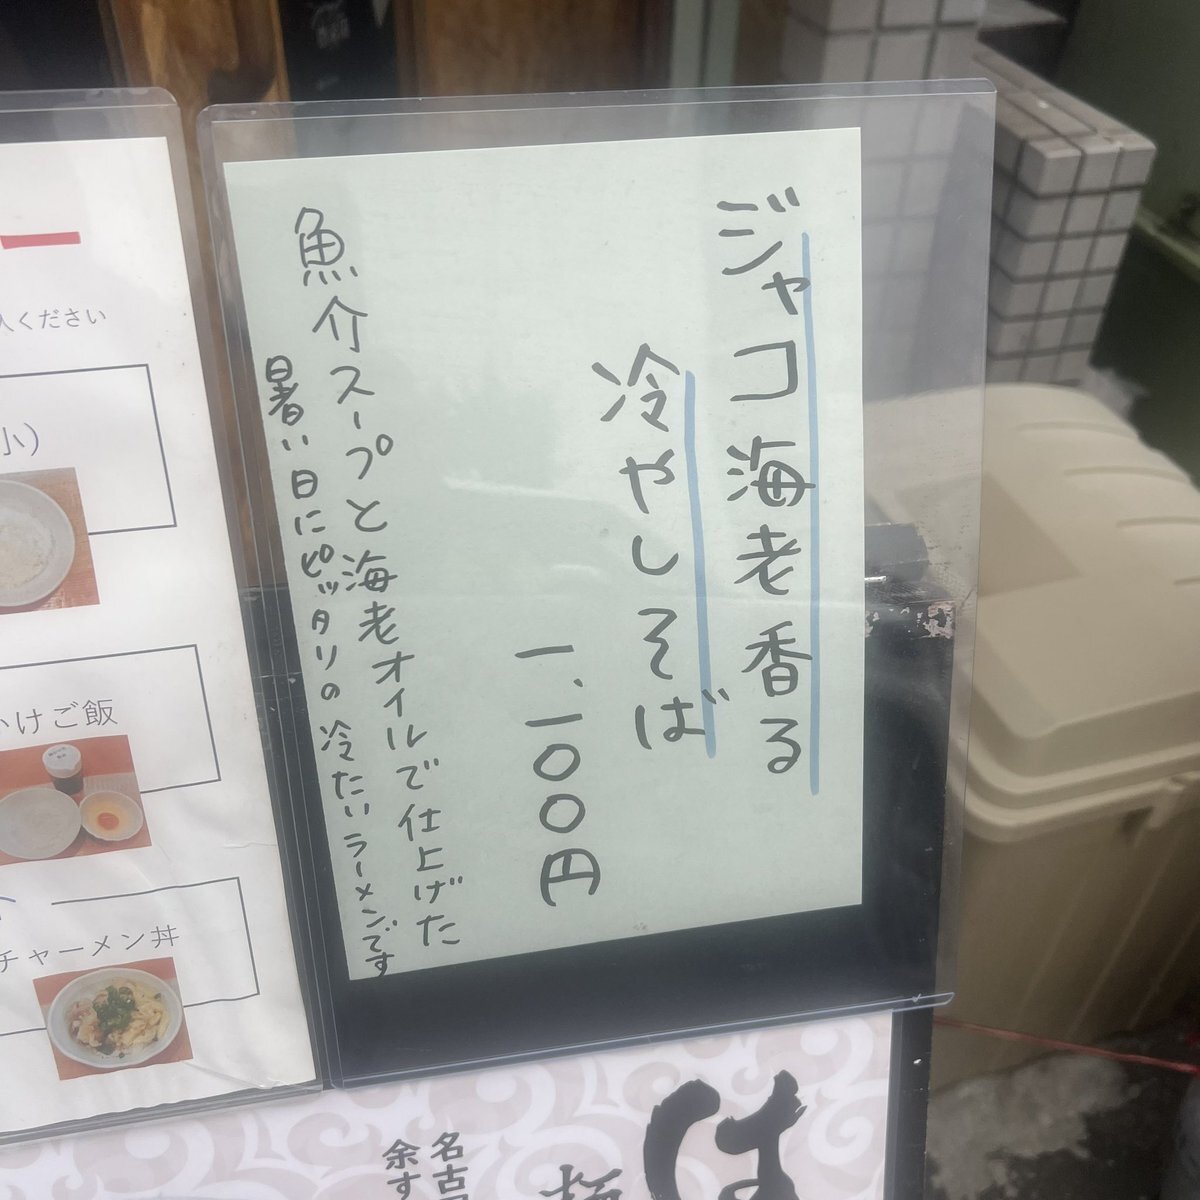 ジャコ海老香る
冷やしそば
一、一〇〇円
魚介スープと海老オイルで仕上げた
暑い日にピッタリの冷たいラーメンです
入ください
小）
かけご飯
チャーメン丼
は
名古
余す